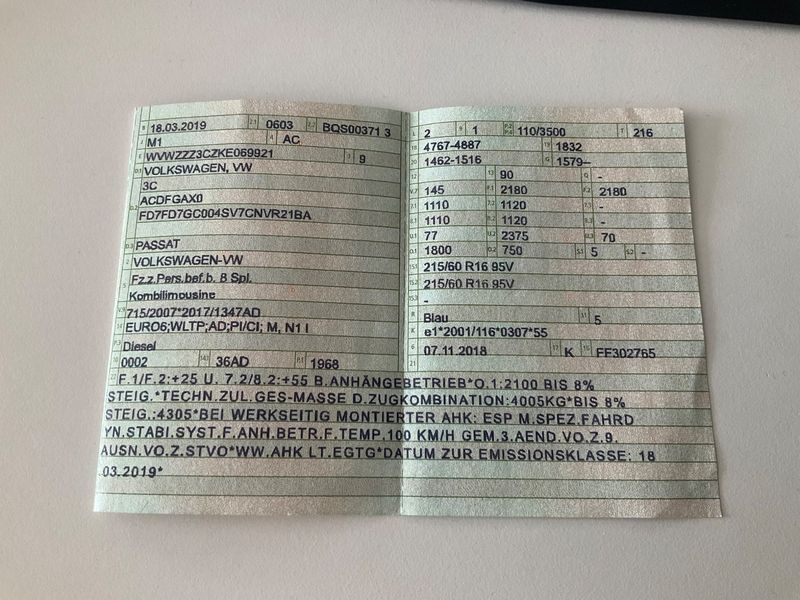 B 18.03.2019 2.1 0603 2.2 BQS00371 3
J M1 4 AC
E WVWZZZ3CZKE069921 3 9
D.1 VOLKSWAGEN, VW
3C
D.2 ACDFGAX0
FD7FD7GC004SV7CNVR21BA
D.3 PASSAT
2 VOLKSWAGEN-VW
5 Fz.z.Pers.bef.b. 8 Spl.
Kombilimousine
V.9 715/2007*2017/1347AD
14 EURO6;WLTP;AD;PI/CI; M, N1 I
P.3 Diesel
10 0002 14.1 36AD P.1 1968
L 2 9 1 P.2 P.4 110/3500 T 216
18 4767-4887 19 1832
20 1462-1516 G 1579–
12 13 90 Q -
V.7 145 F.1 2180 F.2 2180
7.1 1110 7.2 1120 7.3 -
8.1 1110 8.2 1120 8.3 -
U.1 77 U.2 2375 U.3 70
O.1 1800 O.2 750 S.1 5 S.2 -
15.1 215/60 R16 95V
15.2 215/60 R16 95V
15.3 -
R Blau 11 5
K e1*2001/116*0307*55
6 07.11.2018 17 K 16 FF302765
21
22 F.1/F.2:+25 U. 7.2/8.2:+55 B.ANHÄNGEBETRIEB*O.1:2100 BIS 8%
STEIG.*TECHN.ZUL.GES-MASSE D.ZUGKOMBINATION:4005KG*BIS 8%
STEIG.:4305*BEI WERKSEITIG MONTIERTER AHK: ESP M.SPEZ.FAHRD
YN.STABI.SYST.F.ANH.BETR.F.TEMP.100 KM/H GEM.3.AEND.VO.Z.9.
AUSN.VO.Z.STVO*WW.AHK LT.EGTG*DATUM ZUR EMISSIONSKLASSE: 18
.03.2019*